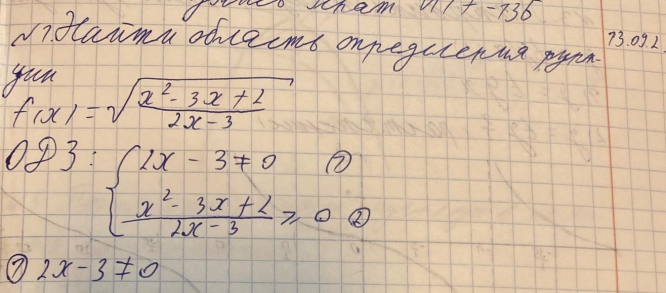 №1. Найти область определения функ- 13.09.2
ции
f(x) = √((x² - 3x + 2)/(2x - 3))
ОДЗ: { 2x - 3 ≠ 0 ①
(x² - 3x + 2)/(2x - 3) ≥ 0 ②
① 2x - 3 ≠ 0